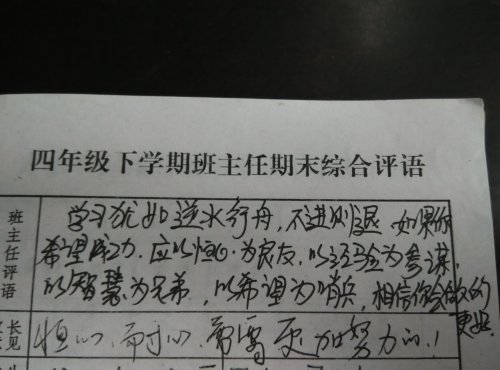 四年级下学期班主任期末综合评语
班主任评语
学习犹如逆水行舟，不进则退。如果你
希望成功，应以恒心为良友，以经验为参谋，
以智慧为兄弟，以希望为哨兵，相信你会做的
更好。
长见
恒心、而寸心、需更加努力的！